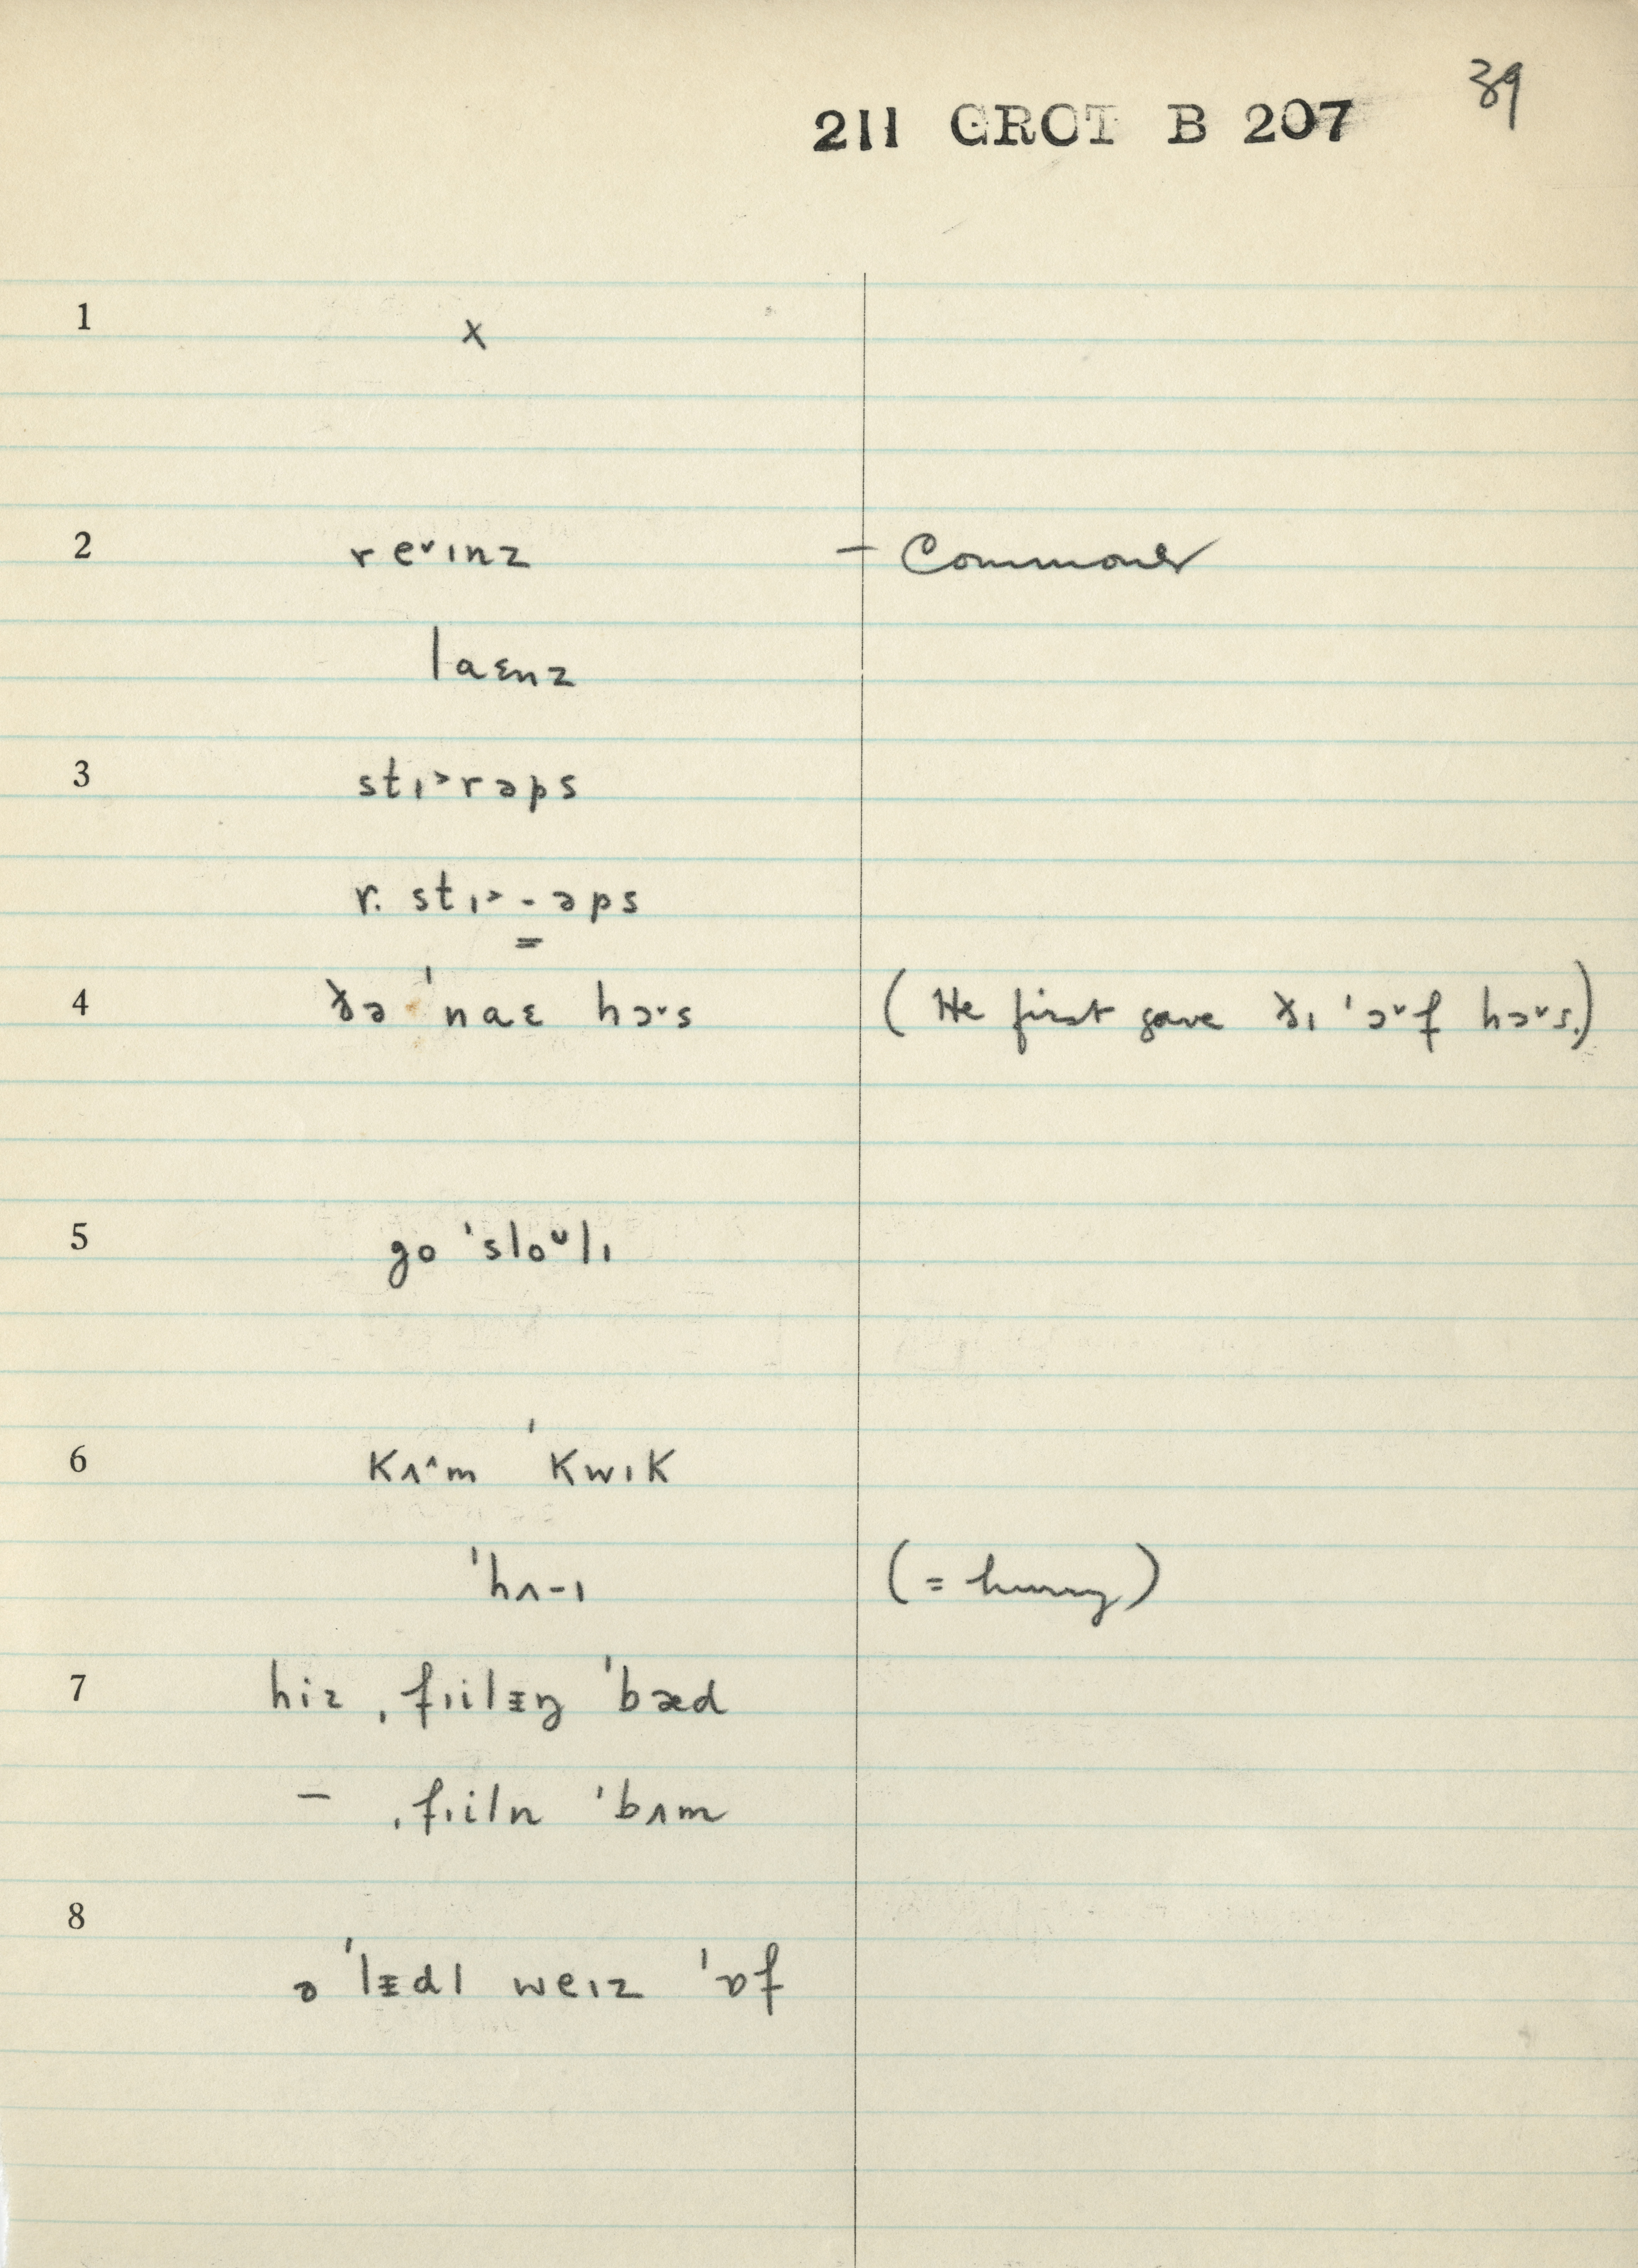 39
211 GROT B 207
1 x
2 re˅ɪnz – Commoner
laɛnz
3 stɪ˃rəps
r. stɪ˃-əps
4 ðə ˈnaɛ hɔ˅s (He first gave ðɪ ˈɔ˅f hɔ˅s.)
5 go ˈsloᴜlɪ
6 kʌ˄m ˈkwɪk
ˈhʌ-ɪ (= hurry)
7 hiz ˌfɪilᵻŋ ˈbæd
– ˌfɪiln ˈbʌm
8
ə ˈlᵻdl weɪz ˈɒf